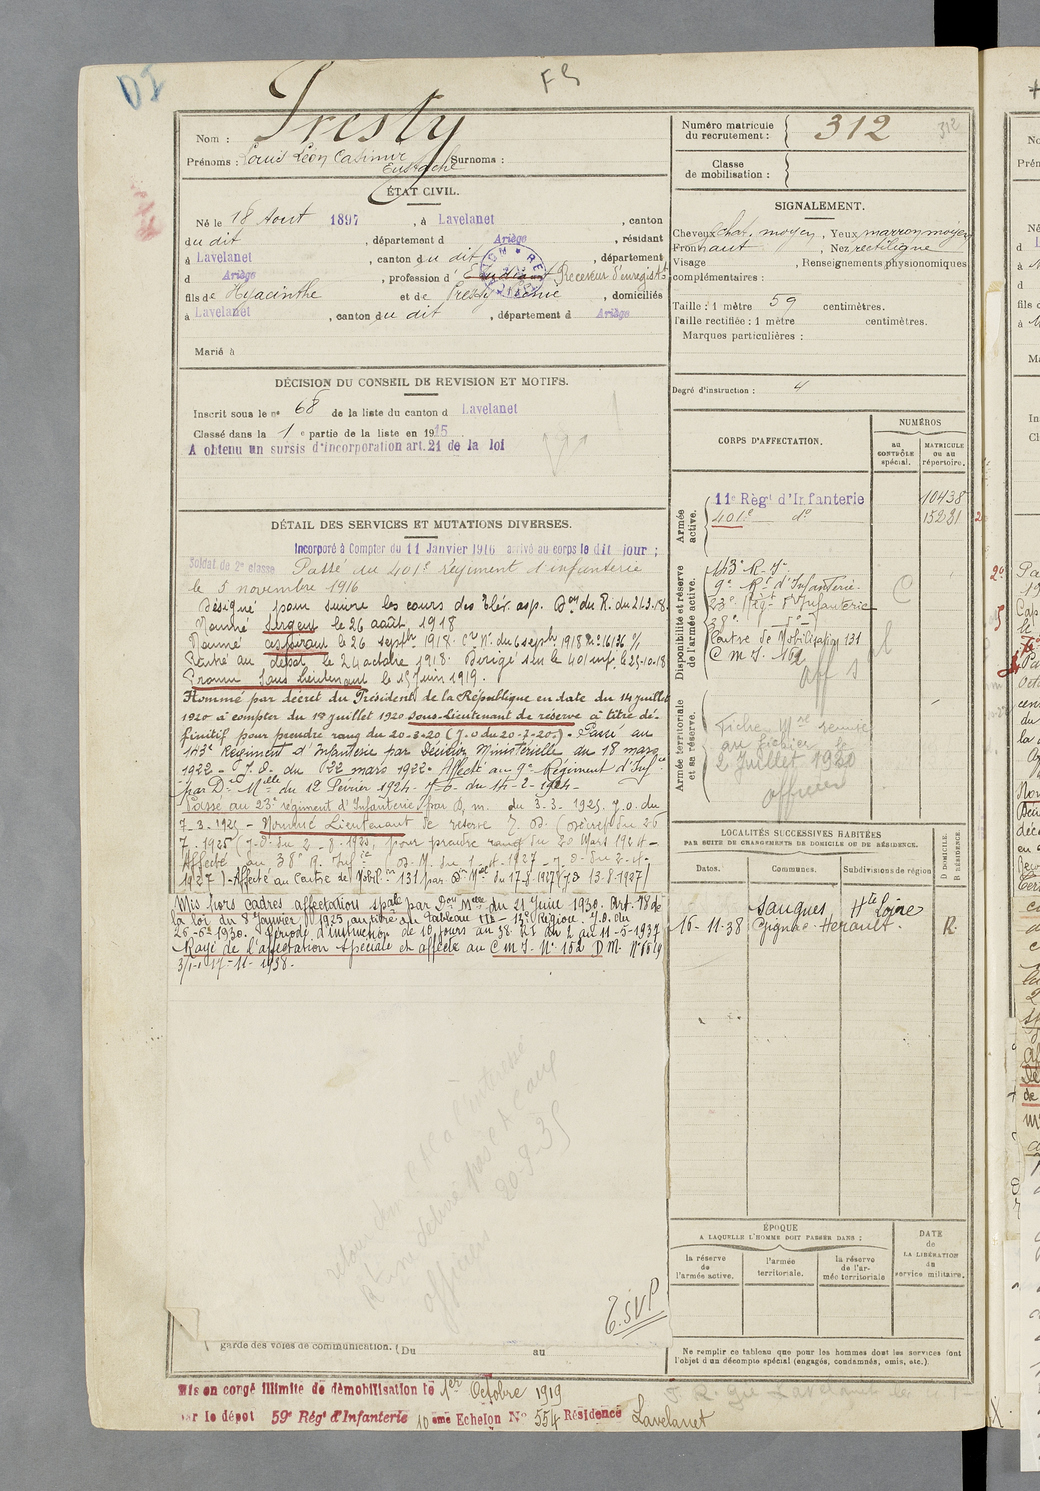 DI
F S
Nom : Tresty
Prénoms : Louis Léon Casimir Surnoms :
Eustache
ÉTAT CIVIL.
Né le 18 Aout 1897, à Lavelanet, canton
du dit, département d Ariège, résidant
à Lavelanet, canton du dit, département
d Ariège, profession d' Etudiant Receveur d'enregistt
fils de Hyacinthe et de Tresty, domiciliés
à Lavelanet, canton du dit, département d Ariège
Marié à
DÉCISION DU CONSEIL DE REVISION ET MOTIFS.
Inscrit sous le n° 68 de la liste du canton d Lavelanet
Classé dans la 1e partie de la liste en 1915
A obtenu un sursis d'incorporation art. 21 de la loi
DÉTAIL DES SERVICES ET MUTATIONS DIVERSES.
Incorporé à Compter du 11 Janvier 1916 arrivé au corps le dit jour ;
Soldat de 2e classe Passé au 401e régiment d'infanterie
le 5 novembre 1916
Désigné pour suivre les cours des Elèv. asp. Don du R. du 24.3.18.
Nommé Sergent le 26 août 1918
Nommé aspirant le 26 septbre 1918. Cr N. du 6 septb. 1918 No 16136 %
Rentré au dépôt le 24 octobre 1918. Dirigé sur le 401 inf. le 25-10-18
Promu Sous Lieutenant le 15 juin 1919.
Nommé par décret du Président de la République en date du 14 juillet
1920 à compter du 18 juillet 1920 Sous-Lieutenant de réserve à titre dé-
finitif pour prendre rang du 20-3-20 (J.O du 20-7-20). - Passé au
143e Régiment d'Infanterie par Décision Ministérielle du 18 mars
1922 - J.O. du (22 mars 1922. Affecté au 9e Régiment d'Infie
par Don Melle du 12 Février 1924. J.O. du 14-2-1924-
Passé au 23e régiment d'Infanterie par D.m. du 3-3-1925. J.O. du
7-3-1925 - Nommé Lieutenant de réserve T.D. (décret du 26
7-1925 (J.O. du 2-8-1925) pour prendre rang du 20 Mars 1924 -
Affecté au 38e R. Infie (D.M. du 1-4-1927 - J.O. du 2-4-
1927) - Affecté au Centre de Mobilon 131 par Don Mel du 17.8.1927 (JO 13-8-1937)
Mis hors cadres affectation spale par Don Melle du 21 Juin 1930. Art. 98 de
la loi du 8 Janvier 1925 au titre du Tableau III - 13e Région. J.O. du
26-6-1930. Période d'instruction de 10 jours au 38. RI du 2 au 11-5-1937
Rayé de l'affectation spéciale et affecté au C M I. No 162 D.M. No 1519
3/1-1 17-11-1938.
retour
officiers
20-9-35
T.S.V.P
garde des voies de communication. (Du au
Mis en congé illimité de démobilisation le 1er Octobre 1919
par le dépôt 59e Régt d'Infanterie 10eme Echelon No 554 Résidence Lavelanet
Numéro matricule du recrutement : 312
312
Classe de mobilisation :
SIGNALEMENT.
Cheveux chat. moyen, Yeux marron moyen
Front haut, Nez rectiligne
Visage, Renseignements physionomiques
complémentaires :
Taille : 1 mètre 59 centimètres.
Taille rectifiée : 1 mètre centimètres.
Marques particulières :
Degré d'instruction : 4
CORPS D'AFFECTATION.
NUMÉROS
au CONTRÔLE spécial.
MATRICULE ou au répertoire.
Armée active.
11e Règt d'Infanterie 10438
401e do 15281
Disponibilité et réserve de l'armée active.
143e R.I.
9e Rt d'Infanterie. C
23e Régt d'Infanterie
38e do
Centre de Mobilisation 131
C M I. 162
Armée territoriale et sa réserve.
Fiche Mle remise
au fichier le
2 Juillet 1930
officier
LOCALITÉS SUCCESSIVES HABITÉES
PAR SUITE DE CHANGEMENTS DE DOMICILE OU DE RÉSIDENCE.
Dates. Communes. Subdivisions de région D DOMICILE. R RÉSIDENCE.
Saugues Hte Loire
16-11-38 Gignac Herault. R.
ÉPOQUE
A LAQUELLE L'HOMME DOIT PASSER DANS :
la réserve de l'armée active.
l'armée territoriale.
la réserve de l'armée territoriale
DATE de LA LIBÉRATION du service militaire.
Ne remplir ce tableau que pour les hommes dont les services font
l'objet d'un décompte spécial (engagés, condamnés, omis, etc.).